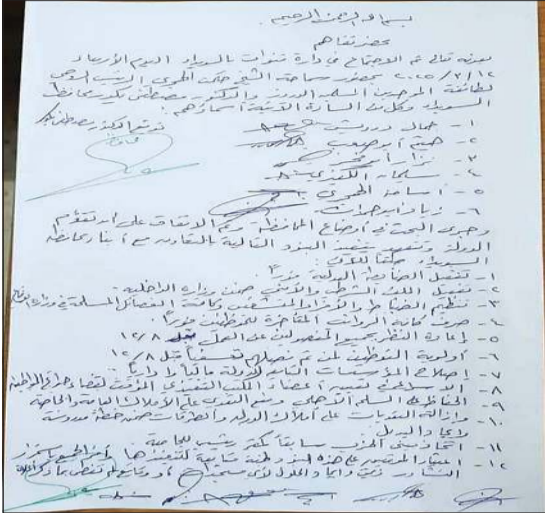 بسم الله الرحمن الرحيم
محضر تفاهم
بعونه تعالى تم الاجتماع في دارة قنوات بالسويداء اليوم الأربعاء
٢٠٢٥/٣/١٢ بحضور سماحة الشيخ حكمت الهجري الرئيس الروحي
لطائفة الموحدين المسلمين الدروز والدكتور مصطفى بكور محافظ
السويداء وكل من السادة الآتية أسماؤهم:
توقيع الدكتور مصطفى بكور
١- جمال درويش
٢- هيثم
٣- نزار أبو فخر
٤- سلمان
٥- أسامة الهجري
٦- زياد أبو حمدان
وجرى البحث في أوضاع المحافظة وتم الاتفاق على أن تقوم
الدولة وتتعهد بتنفيذ البنود التالية بالتعاون مع أبناء محافظة
السويداء
١- تفعيل الضابطة العدلية فوراً
٢- تفعيل الملك الشرطي والأمني ضمن وزارة الداخلية
٣- تنظيم الضباط والأفراد المنشقين وكافة الفصائل المسلحة في وزارة الدفاع
٤- صرف كافة الرواتب المتأخرة للموظفين فوراً
٥- إعادة النظر بجميع المفصولين عن العمل قبل ١٢/٨
٦- أولوية التوظيف لمن تم فصلهم تعسفياً قبل ١٢/٨
٧- إصلاح المؤسسات التابعة للدولة مالياً وإدارياً
٨- الإسراع في تعيين أعضاء المكتب التنفيذي المؤقت لقضاء حوائج المواطنين
٩- الحفاظ على السلم الأهلي ومنع التعدي على الأملاك العامة والخاصة
١٠- وإزالة التعديات على أملاك الدولة والطرقات ضمن خطة مدروسة
وإيجاد البديل
١١- اتخاذ مبنى الحزب سابقاً مقر رئيسي للجامعة
١٢-